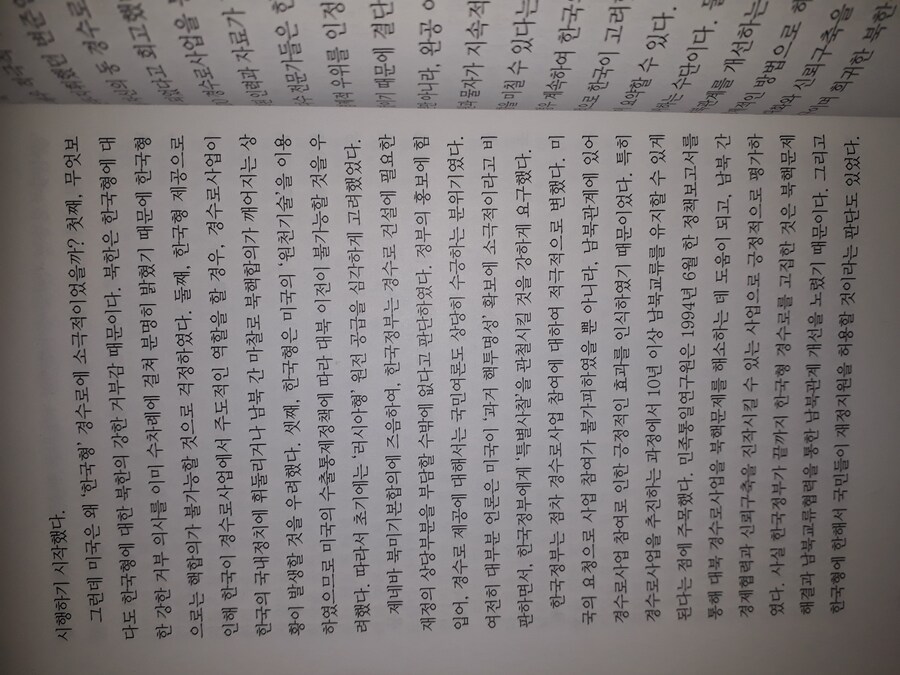 시행하기 시작했다.
그런데 미국은 왜 '한국형' 경수로에 소극적이었을까? 첫째, 무엇보
다도 한국형에 대한 북한의 강한 거부감 때문이다. 북한은 한국형에 대
한 강한 거부 의사를 이미 수차례에 걸쳐 분명히 밝혔기 때문에 한국형
으로는 핵합의가 불가능할 것으로 걱정하였다. 둘째, 한국형 제공으로
인해 한국이 경수로사업에서 주도적인 역할을 할 경우, 경수로사업이
한국의 국내정치에 휘둘리거나 남북 간 마찰로 북핵합의가 깨어지는 상
황이 발생할 것을 우려했다. 셋째, 한국형은 미국의 '원천기술'을 이용
하였으므로 미국의 수출통제정책에 따라 대북 이전이 불가능할 것을 우
려했다. 따라서 초기에는 '러시아형' 원전 공급을 심각하게 고려했었다.
제네바 북미기본합의에 즈음하여, 한국정부는 경수로 건설에 필요한
재정의 상당부분을 부담할 수밖에 없다고 판단하였다. 정부의 홍보에 힘
입어, 경수로 제공에 대해서는 국민여론도 상당히 수긍하는 분위기였다.
여전히 대부분 언론은 미국이 '과거 핵투명성' 확보에 소극적이라고 비
판하면서, 한국정부에게 '특별사찰'을 관철시킬 것을 강하게 요구했다.
한국정부는 점차 경수로사업 참여에 대하여 적극적으로 변했다. 미
국의 요청으로 사업 참여가 불가피하였을 뿐 아니라, 남북관계에 있어
경수로사업 참여로 인한 긍정적인 효과를 인식하였기 때문이었다. 특히
경수로사업을 추진하는 과정에서 10년 이상 남북교류를 유지할 수 있게
된다는 점에 주목했다. 민족통일연구원은 1994년 6월 한 정책보고서를
통해 대북 경수로사업을 북핵문제를 해소하는 데 도움이 되고, 남북 간
경제협력과 신뢰구축을 진작시킬 수 있는 사업으로 긍정적으로 평가하
였다. 사실 한국정부가 끝까지 한국형 경수로를 고집한 것은 북핵문제
해결과 남북교류협력을 통한 남북관계 개선을 노렸기 때문이다. 그리고
한국형에 한해서 국민들이 재정지원을 허용할 것이라는 판단도 있었다.
동 경수로
회고했
경수로사업을
인력과 자료가
전문가들은 한
우위를 인정
때문에 결단
아니라, 완공 이
물자가 지속적
미칠 수 있다는
계속하여 한국
한국이 고려
요약할 수 있다.
수단이다. 둘
개선하는
방법으로 해
신뢰구축을
희귀한 북한